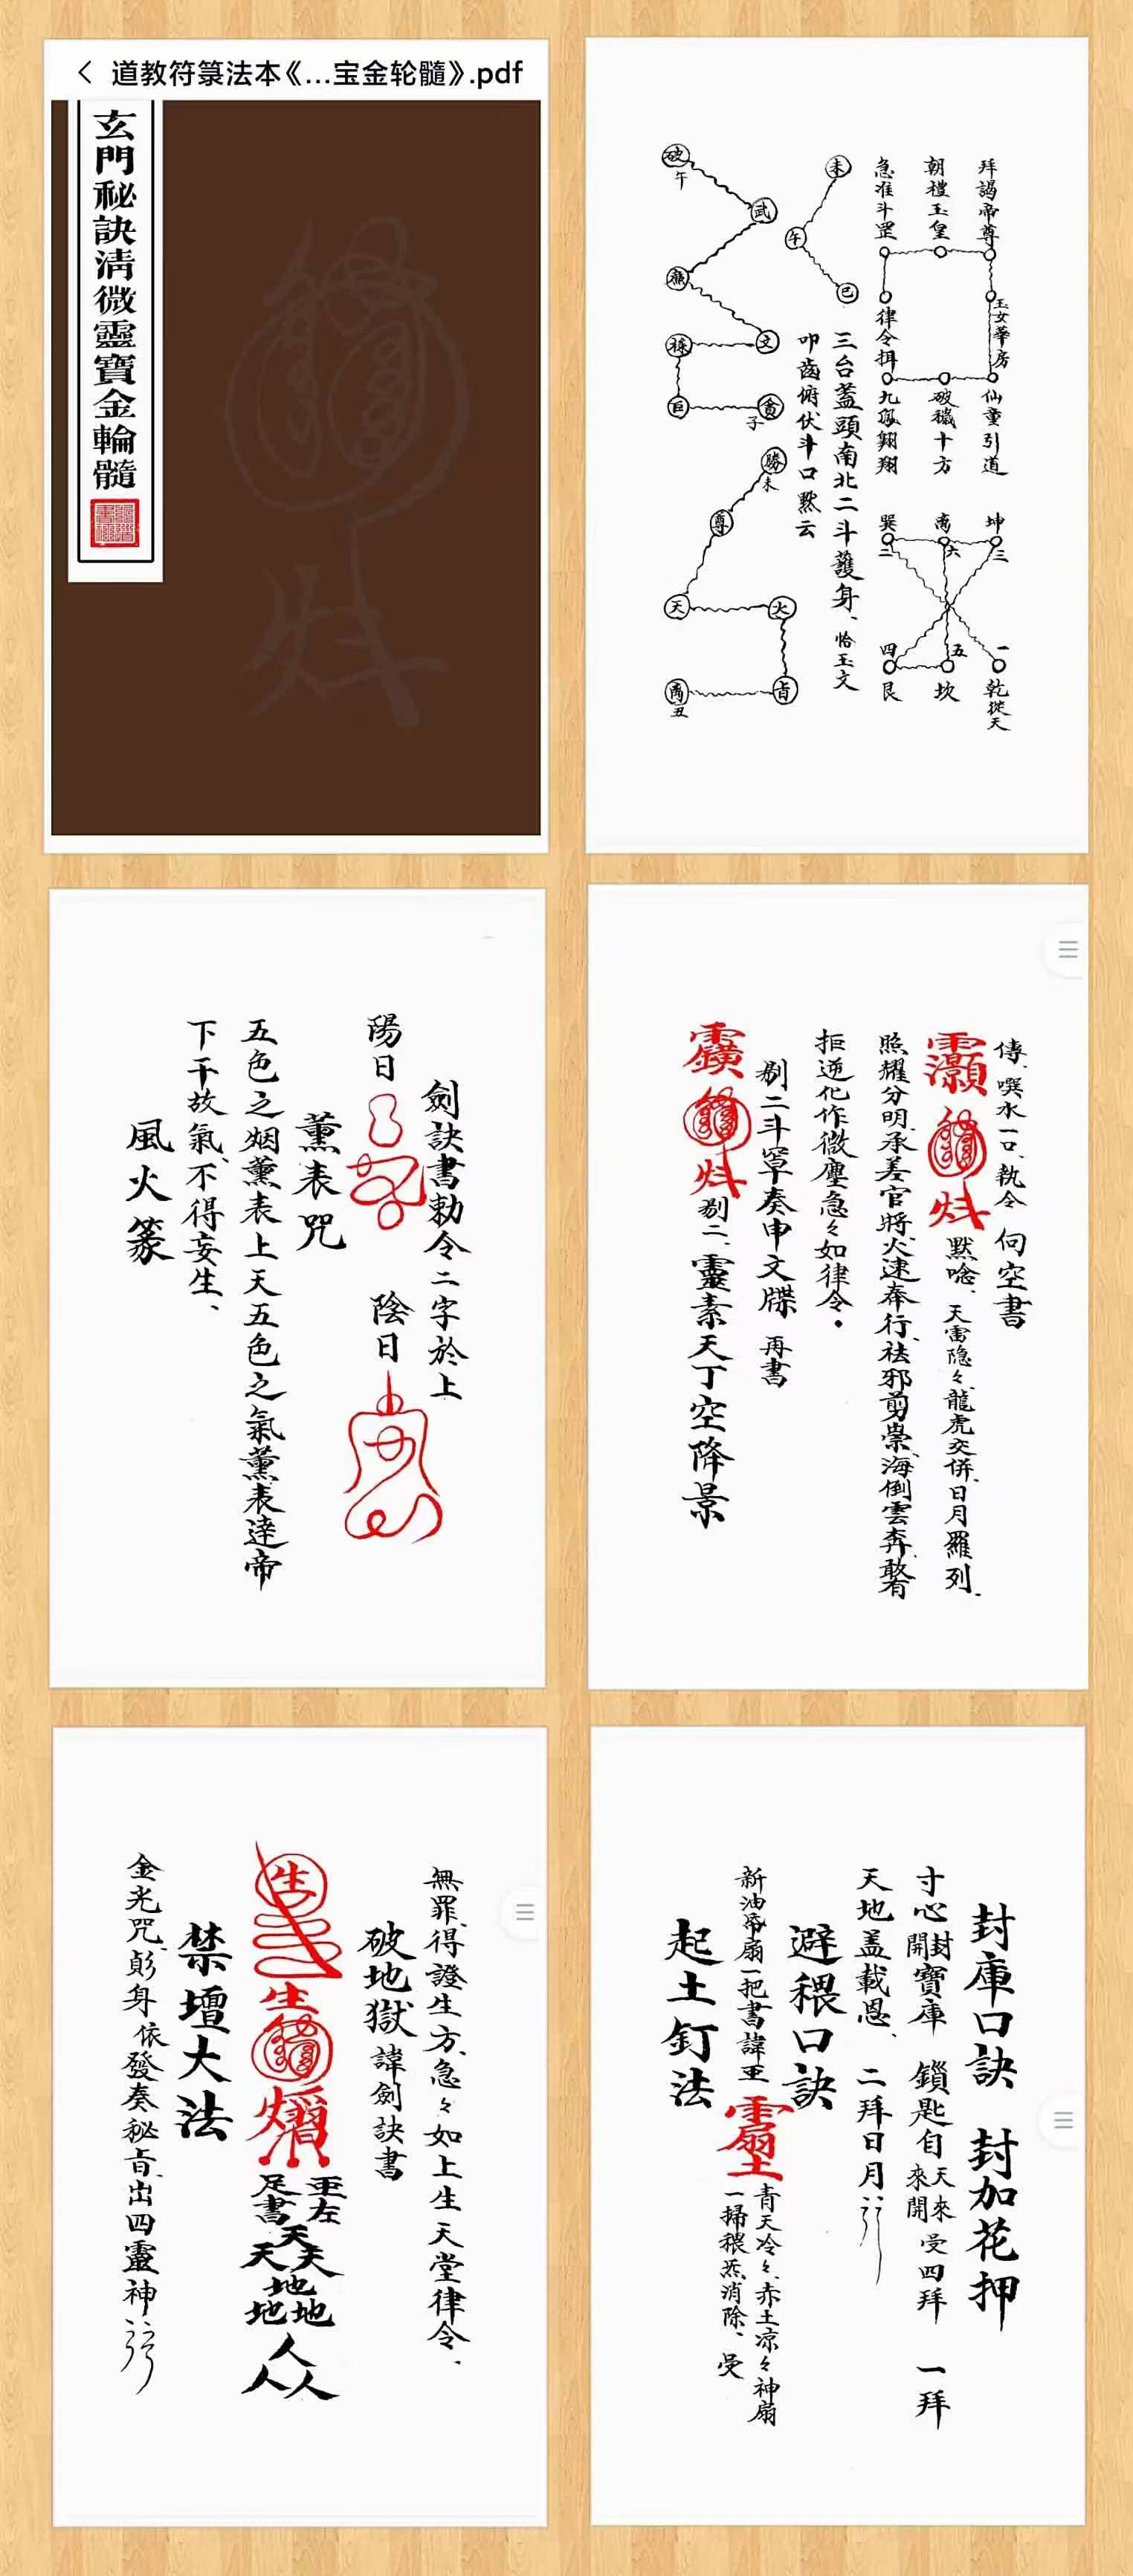 道教符箓法本《...宝金轮髓》.pdf
玄門秘訣清微靈寶金輪髓
拜謁帝尊
朝禮玉皇
急准斗罡
玉女華房
律令揖
仙童引道
破穢十方
九鳳翱翔
坤
三
离
六
巽
二
一
乾從天
五
坎
四
艮
未
午
巳
三台蓋頭南北二斗護身、恰玉文
叩齒俯伏斗口默云
破
午
武
廉
文
祿
巨
貪
子
勝
未
尊
天
火
丑
傳、噀水一口、執令 伺空書
默唸、天雷隐々、龍虎交併、日月羅列、
照耀分明、承差官將、火速奉行、祛邪剪祟、海倒雲奔、敢有
拒逆化作微塵急々如律令。
剔二斗罩奏申文牒 再書
剔二、靈素天丁空降景
劍訣書勅令二字於上
陽日
陰日
薰表咒
五色之烟薰表上天五色之氣薰表達帝
下干故氣、不得妄生、
風火篆
封庫口訣 封加花押
寸心封開寶庫 鎖匙自天來來開 受四拜 一拜
天地盖載恩、二拜日月
避穢口訣
新油帋扇一把書諱
青天冷々、赤土凉々神扇
一掃穢炁消除、受
起土釘法
無罪、得證生方、急々如上生天堂律令、
破地獄諱劍訣書
生
生
左
足書
天
天天
地
地地
人
人人
禁壇大法
金光咒、身依發奏秘旨、出四靈神